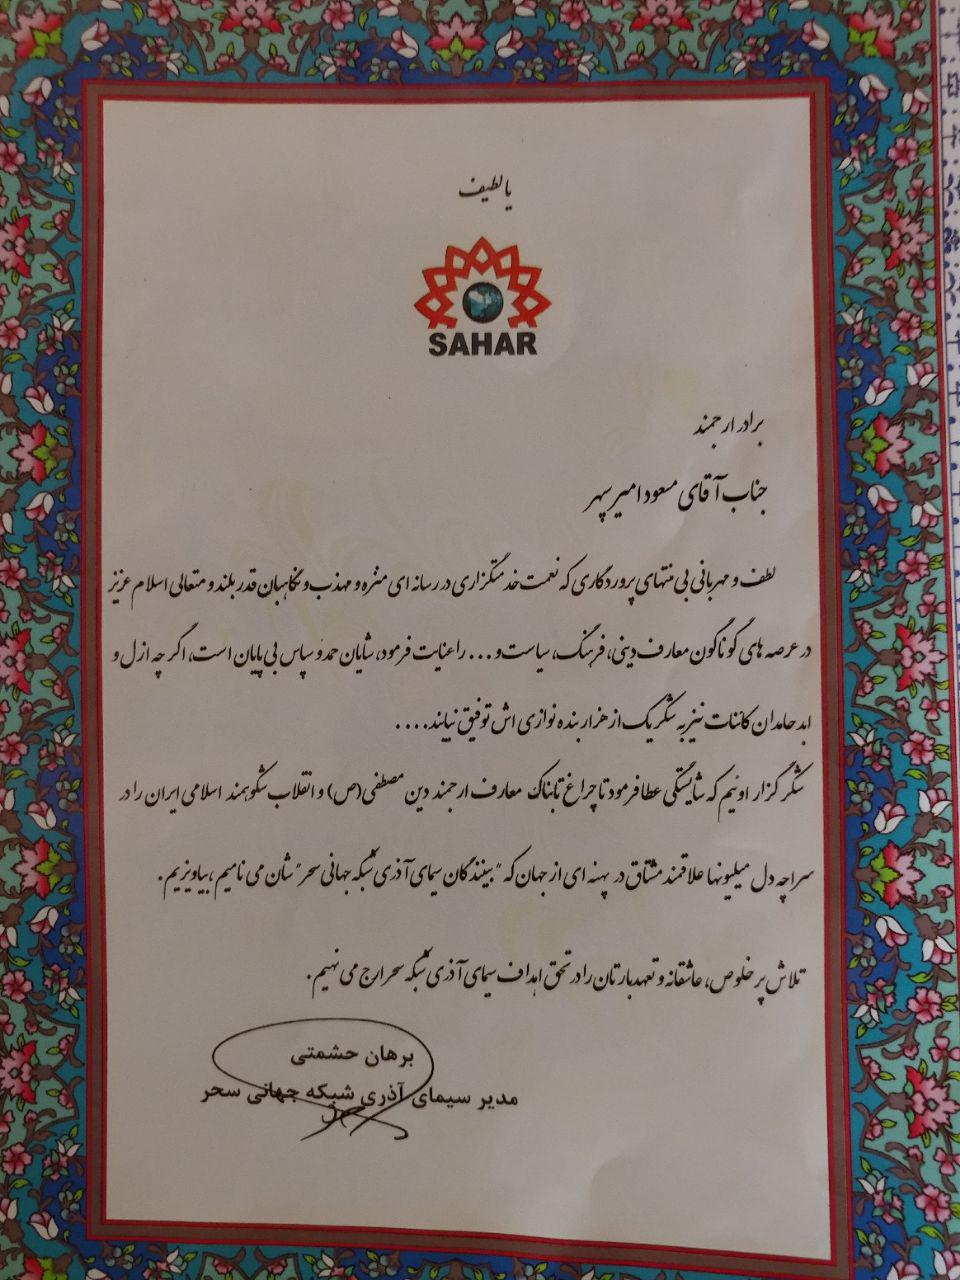 یا لطیف
SAHAR
برادر ارجمند
جناب آقای مسعود امیر سپهر
لطف و مهربانی بی منتهای پروردگاری که نعمت خدمتگزاری در رسانه ای منزه و مهذب و نگاهبان قدر بلند و متعالی اسلام عزیز
در عرصه های گوناگون معارف دینی، فرهنگ، سیاست و ... را عنایت فرمود، شایان حمد و سپاس بی پایان است، اگر چه ازل و
ابد حامدان کائنات نیز به شکر یک از هزار بنده نوازی اش توفیق نیابند....
شکر گزار اوئیم که شایستگی عطا فرمود تا چراغ تابناک معارف ارجمند دین مصطفی (ص) و انقلاب شکوهمند اسلامی ایران را در
سراچه دل میلیونها علاقمند مشتاق در پهنه ای از جهان که "بینندگان سیمای آذری شبکه جهانی سحر" شان می نامیم، بیاویزیم.
تلاش پر خلوص، عاشقانه و تعهدبارتان را در تحقق اهداف سیمای آذری شبکه سحر ارج می نهیم.
برهان حشمتی
مدیر سیمای آذری شبکه جهانی سحر